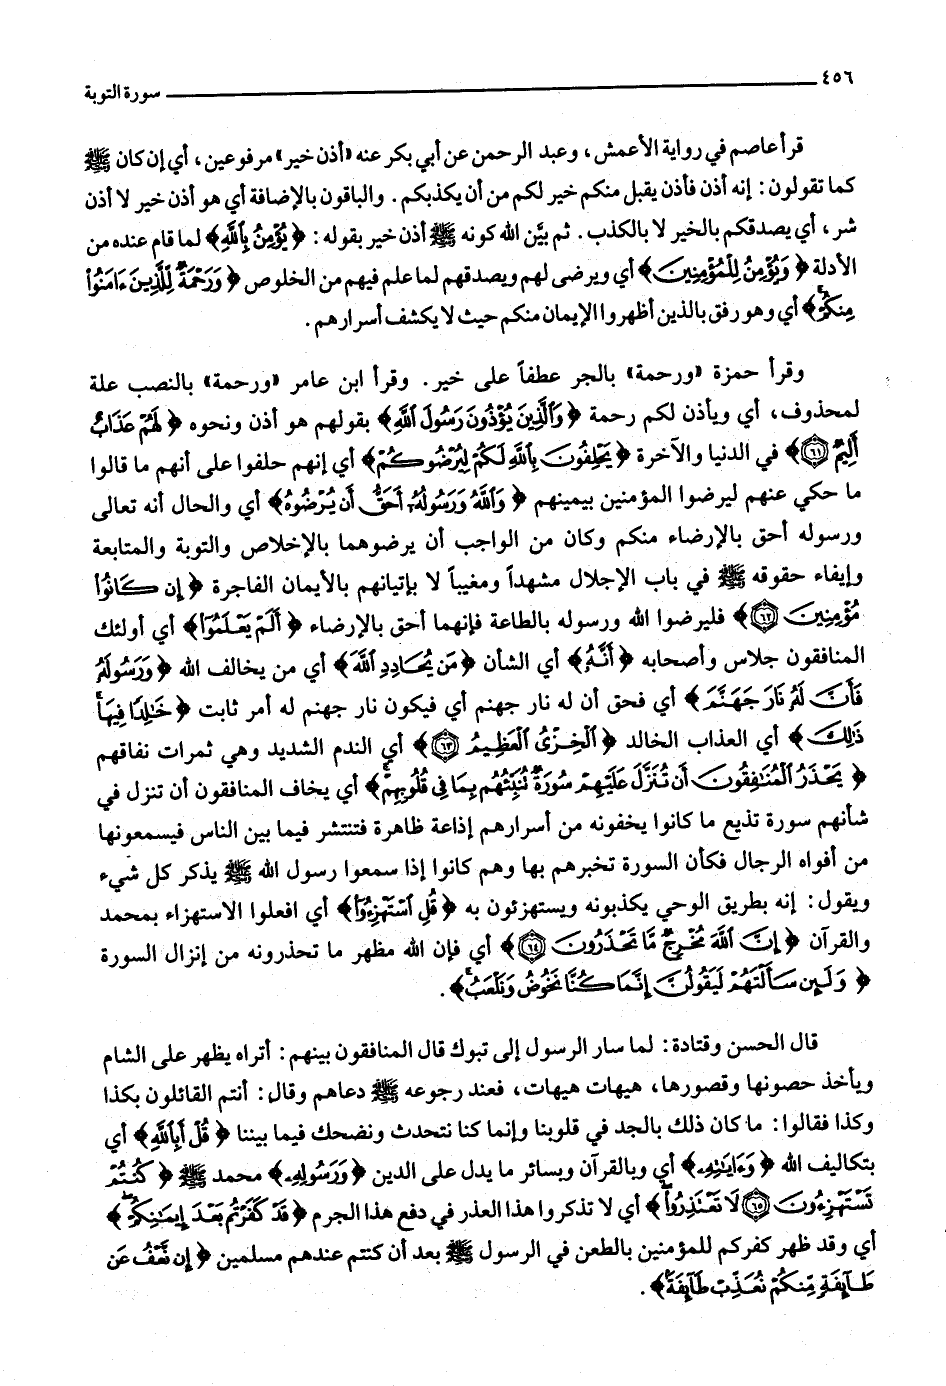 ٤٥٦ سورة التوبة
قرأ عاصم في رواية الأعمش، وعبد الرحمن عن أبي بكر عنه «أذن خير» مرفوعين، أي إن كان ﷺ
كما تقولون: إنه أذن فأذن يقبل منكم خير لكم من أن يكذبكم. والباقون بالإضافة أي هو أذن خير لا أذن
شر، أي يصدقكم بالخير لا بالكذب. ثم بيَّن الله كونه ﷺ أذن خير بقوله: ﴿يُؤْمِنُ بِٱللَّهِ﴾ لما قام عنده من
الأدلة ﴿وَيُؤْمِنُ لِلْمُؤْمِنِينَ﴾ أي ويرضى لهم ويصدقهم لما علم فيهم من الخلوص ﴿وَرَحْمَةٌ لِّلَّذِينَ ءَامَنُوا۟
مِنكُمْ﴾ أي وهو رفق بالذين أظهروا الإيمان منكم حيث لا يكشف أسرارهم.
وقرأ حمزة «ورحمة» بالجر عطفاً على خير. وقرأ ابن عامر «ورحمة» بالنصب علة
لمحذوف، أي ويأذن لكم رحمة ﴿وَٱلَّذِينَ يُؤْذُونَ رَسُولَ ٱللَّهِ﴾ بقولهم هو أذن ونحوه ﴿لَهُمْ عَذَابٌ
أَلِيمٌ ٦١﴾ في الدنيا والآخرة ﴿يَحْلِفُونَ بِٱللَّهِ لَكُمْ لِيُرْضُوكُمْ﴾ أي إنهم حلفوا على أنهم ما قالوا
ما حكي عنهم ليرضوا المؤمنين بيمينهم ﴿وَٱللَّهُ وَرَسُولُهُۥٓ أَحَقُّ أَن يُرْضُوهُ﴾ أي والحال أنه تعالى
ورسوله أحق بالإرضاء منكم وكان من الواجب أن يرضوهما بالإخلاص والتوبة والمتابعة
وإيفاء حقوقه ﷺ في باب الإجلال مشهداً ومغيباً لا بإتيانهم بالأيمان الفاجرة ﴿إِن كَانُوا۟
مُؤْمِنِينَ ٦٢﴾ فليرضوا الله ورسوله بالطاعة فإنهما أحق بالإرضاء ﴿أَلَمْ يَعْلَمُوٓا۟﴾ أي أولئك
المنافقون جلاس وأصحابه ﴿أَنَّهُۥ﴾ أي الشأن ﴿مَن يُحَادِدِ ٱللَّهَ﴾ أي من يخالف الله ﴿وَرَسُولَهُۥ
فَأَنَّ لَهُۥ نَارَ جَهَنَّمَ﴾ أي فحق أن له نار جهنم أي فيكون نار جهنم له أمر ثابت ﴿خَٰلِدًا فِيهَا ۚ
ذَٰلِكَ﴾ أي العذاب الخالد ﴿ٱلْخِزْىُ ٱلْعَظِيمُ ٦٣﴾ أي الندم الشديد وهي ثمرات نفاقهم
﴿يَحْذَرُ ٱلْمُنَٰفِقُونَ أَن تُنَزَّلَ عَلَيْهِمْ سُورَةٌ تُنَبِّئُهُم بِمَا فِى قُلُوبِهِمْ﴾ أي يخاف المنافقون أن تنزل في
شأنهم سورة تذيع ما كانوا يخفونه من أسرارهم إذاعة ظاهرة فتنتشر فيما بين الناس فيسمعونها
من أفواه الرجال فكأن السورة تخبرهم بها وهم كانوا إذا سمعوا رسول الله ﷺ يذكر كل شيء
ويقول: إنه بطريق الوحي يكذبونه ويستهزئون به ﴿قُلِ ٱسْتَهْزِءُوٓا۟﴾ أي افعلوا الاستهزاء بمحمد
والقرآن ﴿إِنَّ ٱللَّهَ مُخْرِجٌ مَّا تَحْذَرُونَ ٦٤﴾ أي فإن الله مظهر ما تحذرونه من إنزال السورة
﴿وَلَئِن سَأَلْتَهُمْ لَيَقُولُنَّ إِنَّمَا كُنَّا نَخُوضُ وَنَلْعَبُ﴾.
قال الحسن وقتادة: لما سار الرسول إلى تبوك قال المنافقون بينهم: أتراه يظهر على الشام
ويأخذ حصونها وقصورها، هيهات هيهات، فعند رجوعه ﷺ دعاهم وقال: أنتم القائلون بكذا
وكذا فقالوا: ما كان ذلك بالجد في قلوبنا وإنما كنا نتحدث ونضحك فيما بيننا ﴿قُلْ أَبِٱللَّهِ﴾ أي
بتكاليف الله ﴿وَءَايَٰتِهِۦ﴾ أي وبالقرآن وبسائر ما يدل على الدين ﴿وَرَسُولِهِۦ﴾ محمد ﷺ ﴿كُنتُمْ
تَسْتَهْزِءُونَ ٦٥ لَا تَعْتَذِرُوا۟﴾ أي لا تذكروا هذا العذر في دفع هذا الجرم ﴿قَدْ كَفَرْتُم بَعْدَ إِيمَٰنِكُمْ﴾
أي وقد ظهر كفركم للمؤمنين بالطعن في الرسول ﷺ بعد أن كنتم عندهم مسلمين ﴿إِن نَّعْفُ عَن
طَآئِفَةٍ مِّنكُمْ نُعَذِّبْ طَآئِفَةً﴾.